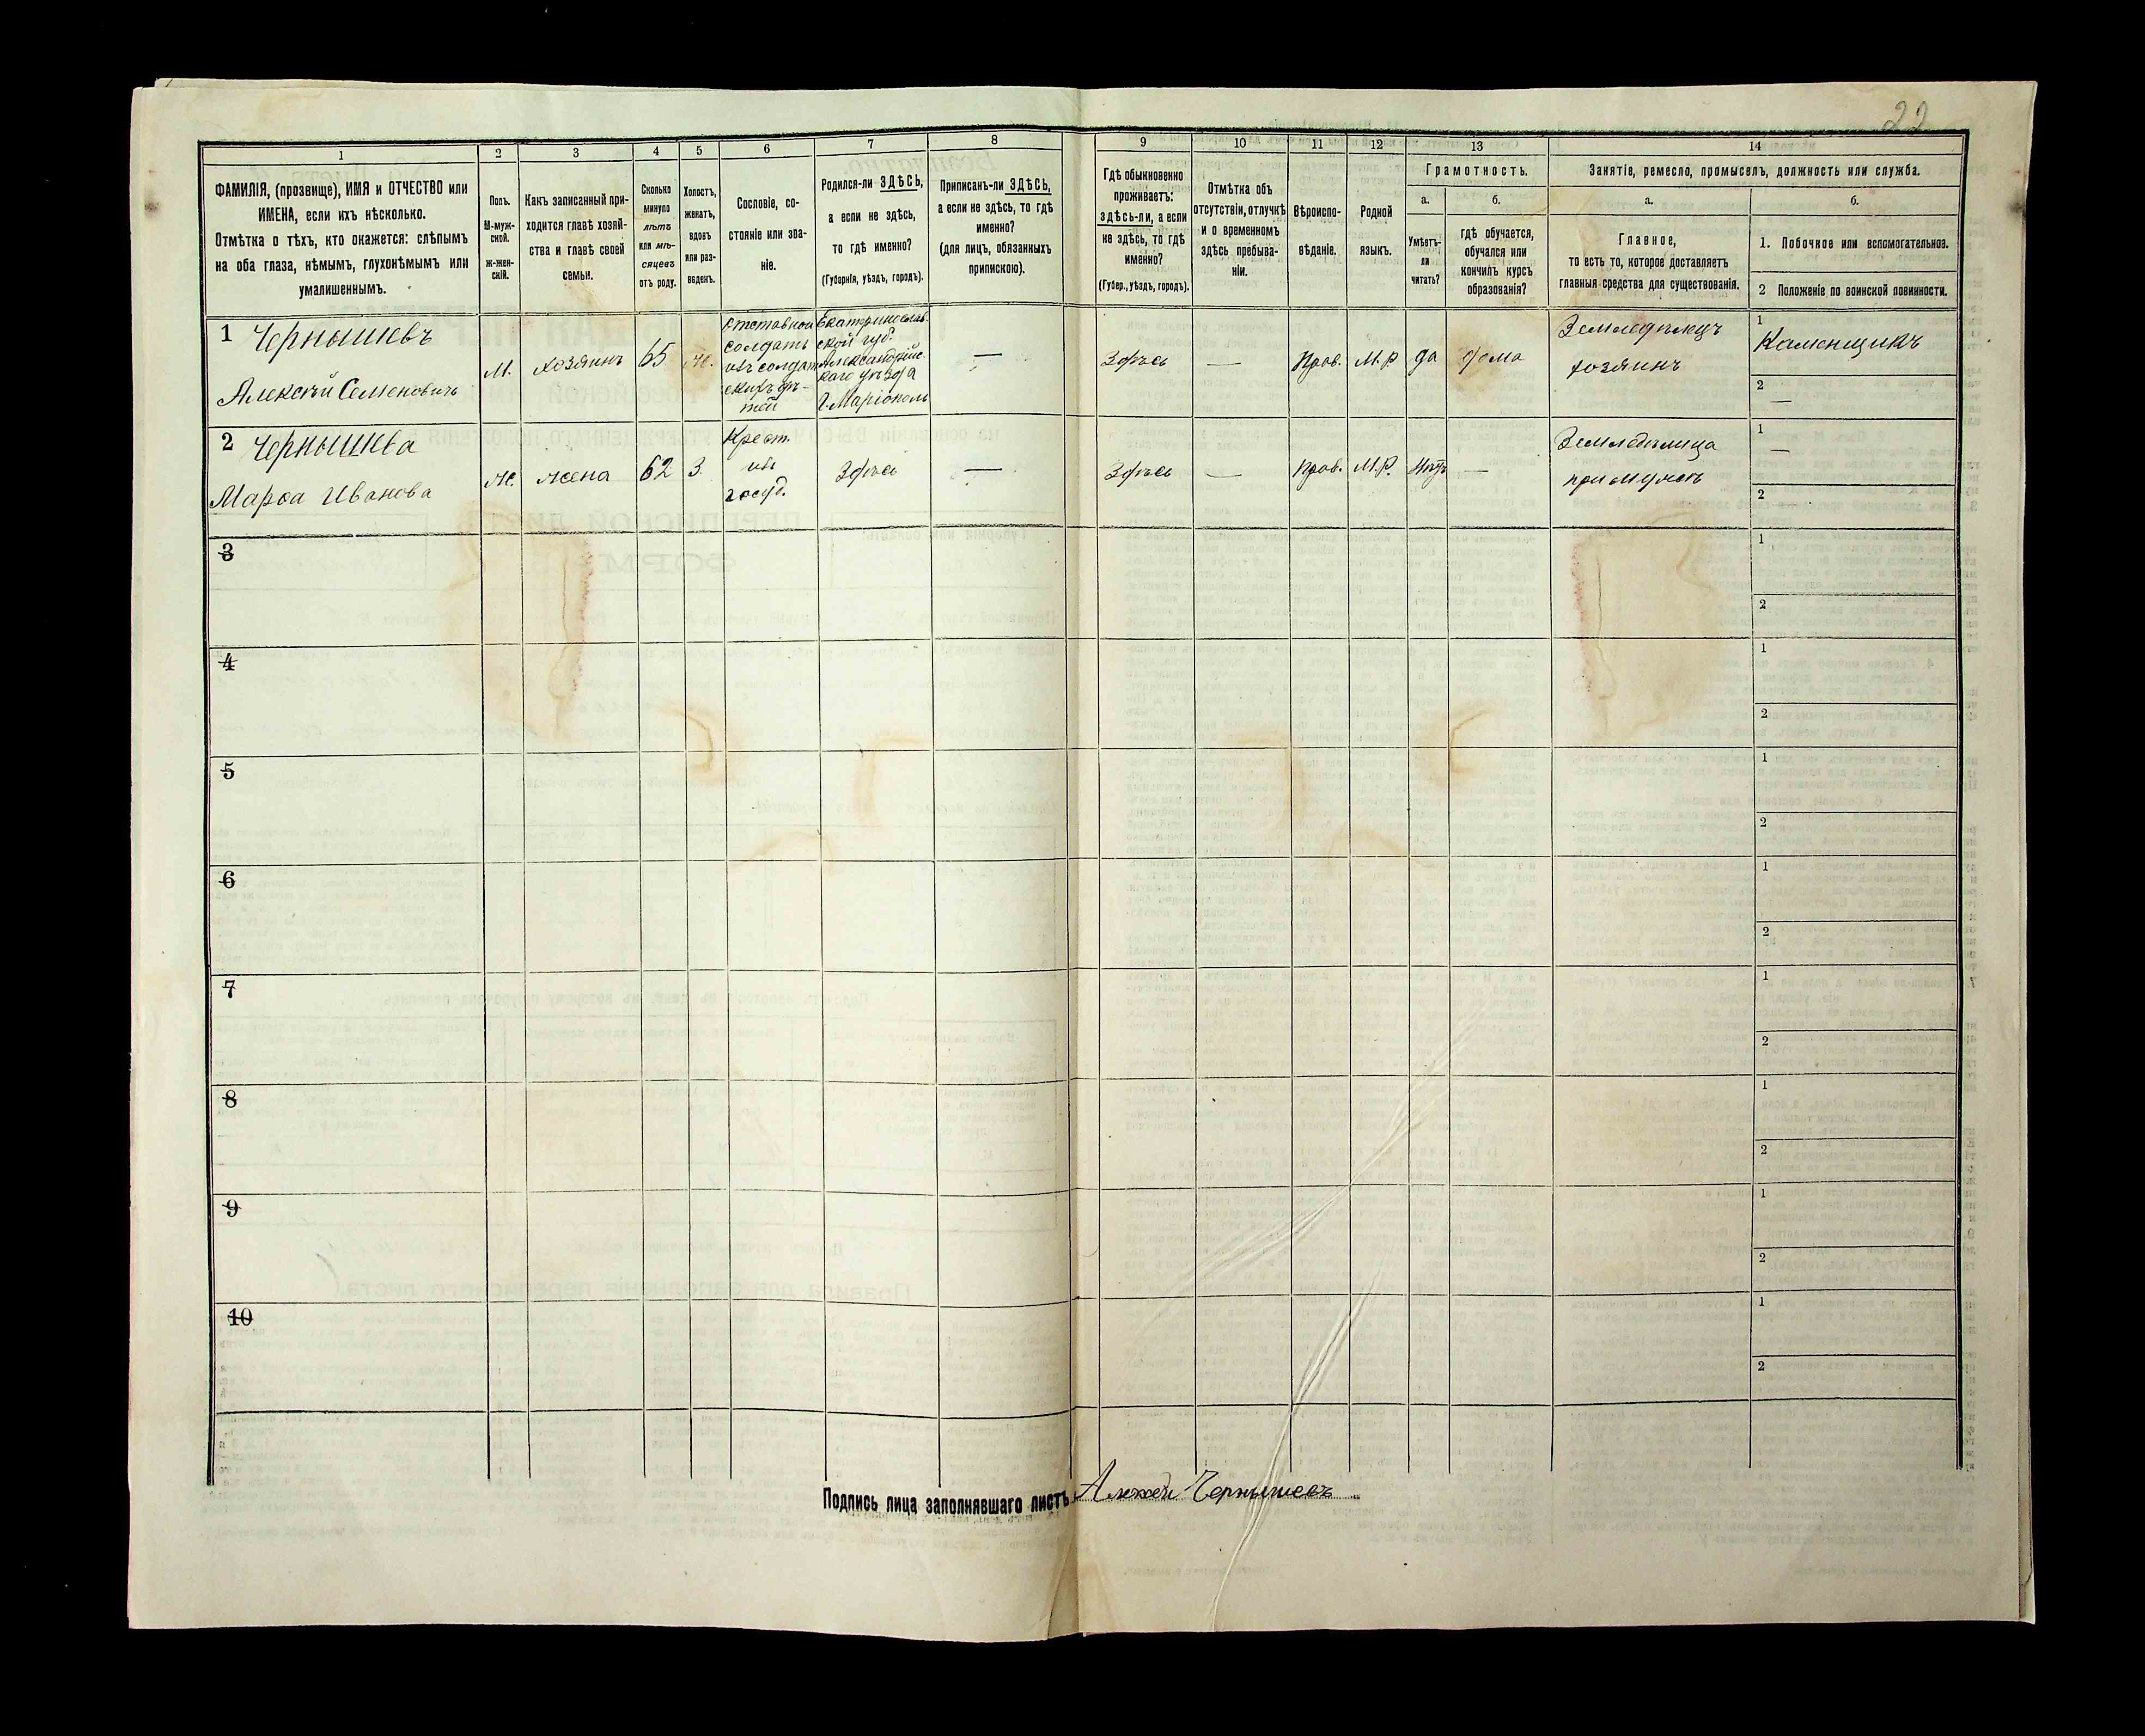 22
1 2 3 4 5 6 7 8 9 10 11 12 13 14
ФАМИЛІЯ, (прозвище), ИМЯ и ОТЧЕСТВО или
ИМЕНА, если ихъ нѣсколько.
Отмѣтка о тѣхъ, кто окажется: слѣпымъ
на оба глаза, нѣмымъ, глухонѣмымъ или
умалишеннымъ.
Полъ.
М-муж-
ской.
ж-жен-
скій.
Какъ записанный при-
ходится главѣ хозяй-
ства и главѣ своей
семьи.
Сколько
минуло
лѣтъ
или мѣ-
сяцевъ
отъ роду.
Холостъ,
женатъ,
вдовъ
или раз-
веденъ.
Сословіе, со-
стояніе или зва-
ніе.
Родился-ли ЗДѢСЬ,
а если не здѣсь,
то гдѣ именно?
(Губернія, уѣздъ, городъ).
Приписанъ-ли ЗДѢСЬ,
а если не здѣсь, то гдѣ
именно?
(для лицъ, обязанныхъ
припискою).
Гдѣ обыкновенно
проживаетъ:
здѣсь-ли, а если
не здѣсь, то гдѣ
именно?
(Губер., уѣздъ, городъ).
Отмѣтка объ
отсутствіи, отлучкѣ
и о временномъ
здѣсь пребыва-
ніи.
Вѣроиспо-
вѣданіе.
Родной
языкъ.
Грамотность.
а.
Умѣетъ-
ли
читать?
б.
гдѣ обучается,
обучался или
кончилъ курсъ
образованія?
Занятіе, ремесло, промыселъ, должность или служба.
а.
Главное,
то есть то, которое доставляетъ
главныя средства для существованія.
б.
1. Побочное или вспомогательное.
2 Положеніе по воинской повинности.
1 Чернышевъ
Алексѣй Семеновичъ
М.
хозяинъ
65
Ж.
Отставной
солдатъ
изъ солдат
скихъ дѣ-
тей
Екатеринослав.
ской губ.
Александрійс.
каго уѣзда
г. Маріополь
—
Здѣсь
—
Прав.
М.р.
да
дома
Земледѣлецъ
хозяинъ
1
Каменщикъ
2
—
2 Чернышева
Марѳа Иванова
Ж.
жена
62
З.
Крест.
изъ
госуд.
Здѣсь
—
Здѣсь
—
Прав.
М.р.
Нѣтъ
—
Земледѣлица
при мужѣ
1
—
2
3
1
2
4
1
2
5
1
2
6
1
2
7
1
2
8
1
2
9
1
2
10
1
2
Подпись лица заполнявшаго листъ Алексѣй Чернышевъ